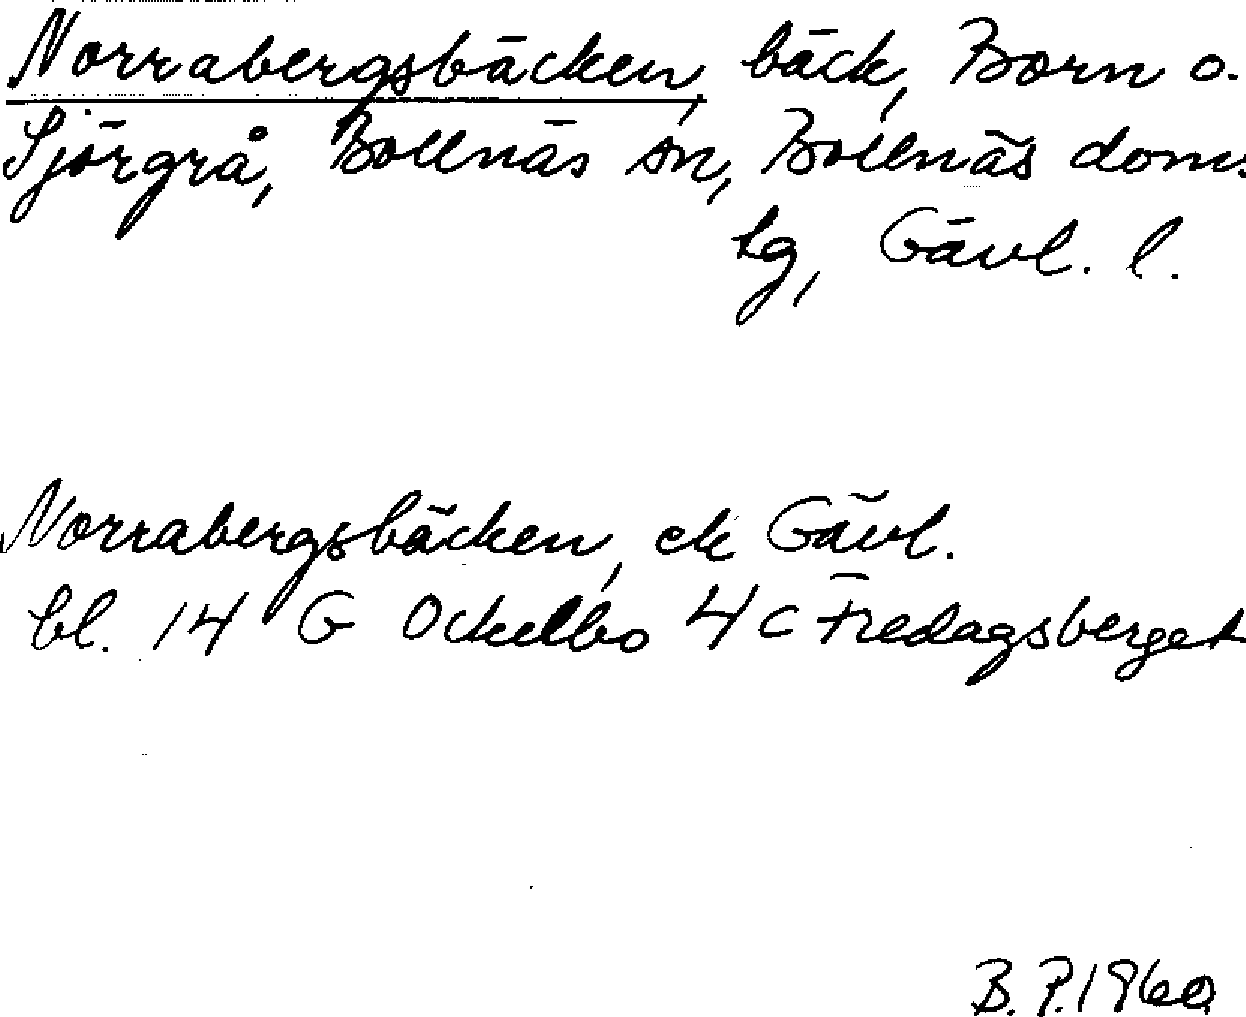 Norrabergsbäcken, bäck, Born o.
Sjörgrå, Bollnäs sn, Bollnäs doms.
lg, Gävl. l.
Norrabergsbäcken, ek Gävl.
bl. 14 G Ockelbo 4 c Fredagsberget
B. P. 1960